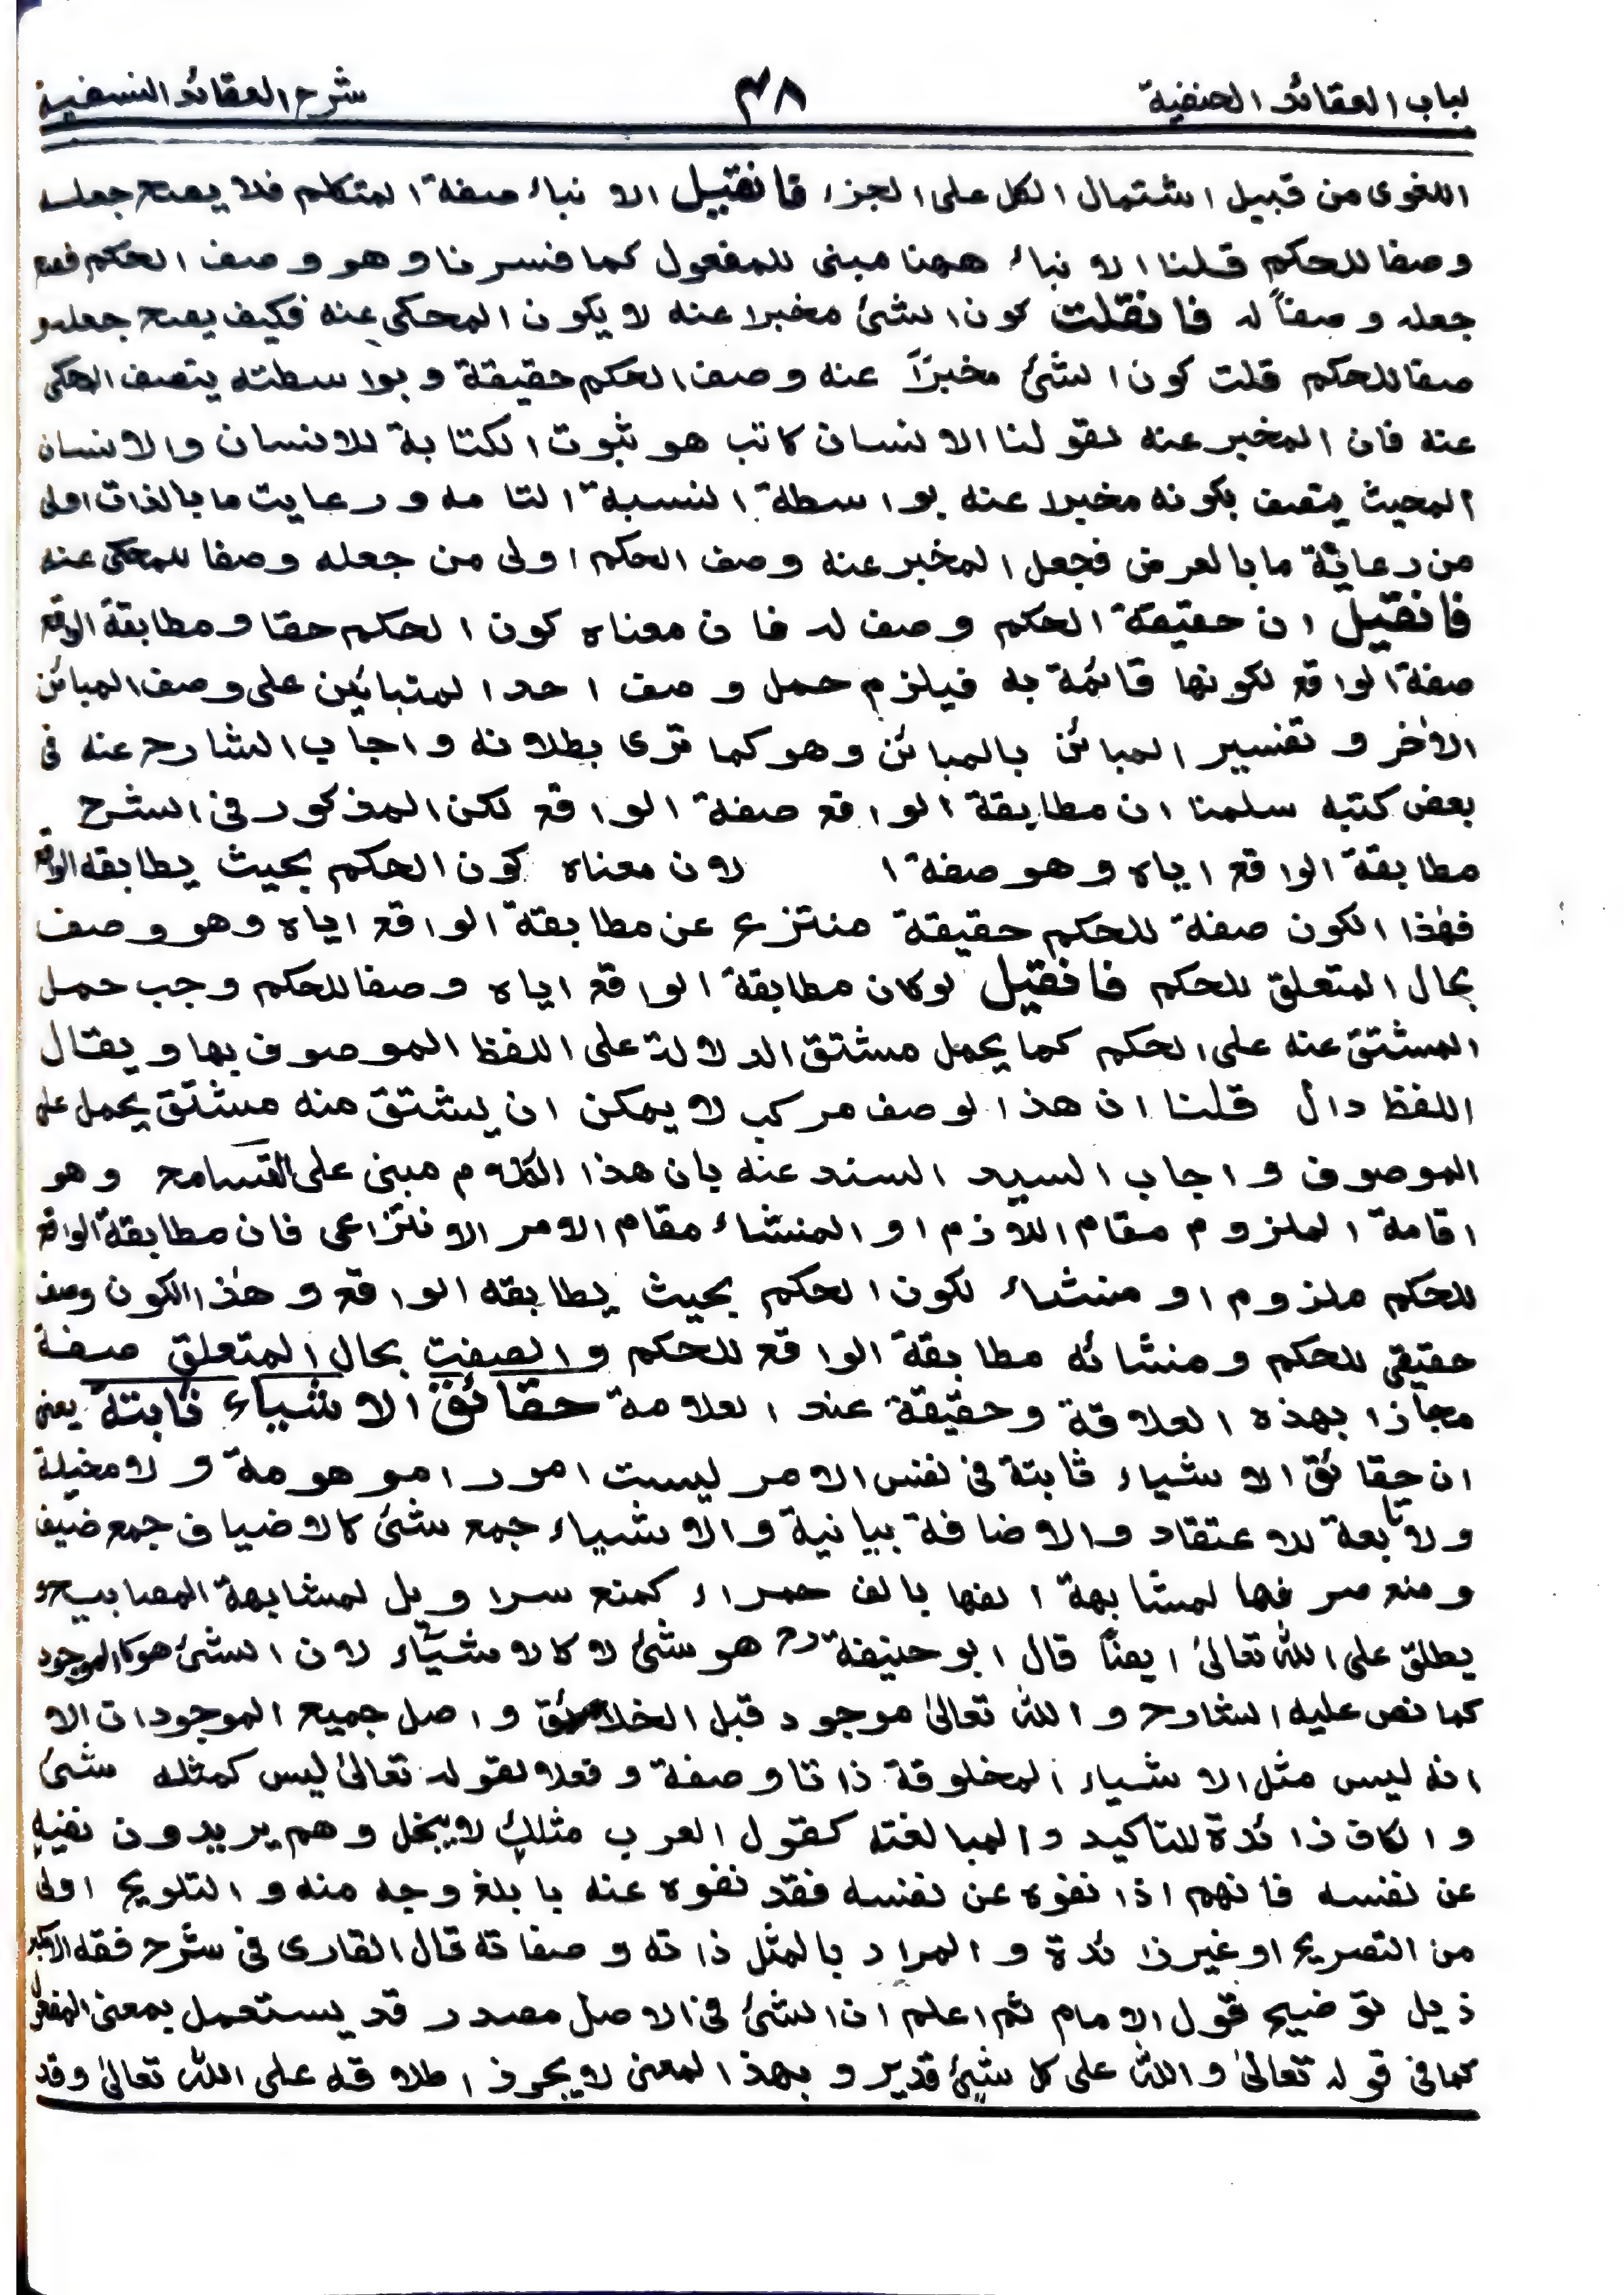 لباب العقائد الحنفية ٣٨ شرح العقائد النسفية
اللغوى من قبيل اشتمال الكل على الجزء فانقيل الانباء صفة المتكلم فلا يصح جعله
وصفا للحكم قلنا الانباء ههنا مبنى للمفعول كما فسرنا وهو وصف الحكم فصح
جعله وصفاً له فانقلت كون الشئ مخبرا عنه لا يكون المحكى عنه فكيف يصح جعله و
صفا للحكم قلت كون الشئ مخبراً عنه وصف الحكم حقيقة وبواسطته يتصف المحكى
عنه فان المخبر عنه لقولنا الانسان كاتب هو ثبوت الكتابة للانسان والانسان
المحيث يتصف بكونه مخبرا عنه بواسطة النسبة التامه ورعايت ما بالذات اولى
من رعاية ما بالعرض فجعل المخبر عنه وصف الحكم اولى من جعله وصفا للمحكى عنه
فانقيل ان حقيقة الحكم وصف له فان معناه كون الحكم حقا ومطابقة الواقع
صفة الواقع لكونها قائمة به فيلزم حمل وصف احد المتبائين على وصف المبائن
الأخر وتفسير المبائن بالمبائن وهو كما ترى بطلانه واجاب الشارح عنه فى
بعض كتبه سلمنا ان مطابقة الواقع صفة الواقع لكن المذكور فى الشرح
مطابقة الواقع اياه وهو صفة ا لان معناه كون الحكم بحيث يطابقه الواقع
فهذا الكون صفة للحكم حقيقة منتزع عن مطابقة الواقع اياه وهو وصف
بحال المتعلق للحكم فانقيل لو كان مطابقة الواقع اياه وصفا للحكم وجب حمل
المشتق عنه على الحكم كما يحمل مشتق الدلالة على اللفظ الموصوف بها ويقال
اللفظ دال قلنا ان هذا لوصف مركب لا يمكن ان يشتق منه مشتق يحمل على
الموصوف واجاب السيد السند عنه بان هذا الكلام مبنى على التسامح وهو
اقامة الملزوم مقام اللازم او المنشاء مقام الامر الانتزاعى فان مطابقة الواقع
للحكم ملزوم او منشاء لكون الحكم بحيث يطابقه الواقع وهذا الكون وصف
حقيقى للحكم ومنشائه مطابقة الواقع للحكم والصفت بحال المتعلق صفة
مجازا بهذه العلاقة وحقيقة عند العلامة حقائق الاشياء ثابتة يعنى
ان حقائق الاشياء ثابتة فى نفس الامر ليست امورا موهومة ولا مخيلة
ولا تابعة للاعتقاد والاضافة بيانية والاشياء جمع شئ كالاضياف جمع ضيف
ومنع صرفها لمشابهة الفها بالف حمراء كمنع سراويل لمشابهة المصابيح
يطلق على الله تعالىٰ ايضاً قال ابو حنيفةرح هو شئ لا كالاشياء لان الشئ هو الموجود
كما نص عليه الشارح والله تعالىٰ موجود قبل الخلائق واصل جميع الموجودات الا
انه ليس مثل الاشياء المخلوقة ذاتا وصفة وفعلا لقوله تعالىٰ ليس كمثله شئ
والكاف زائدة للتاكيد والمبالغته كقول العرب مثلك لا يبخل وهم يريدون نفيه
عن نفسه فانهم اذا نفوه عن نفسه فقد نفوه عنه بابلغ وجه منه والتلويح اولى
من التصريح او غير زائدة والمراد بالمثل ذاته وصفاته قال القارى فى شرح فقه الاكبر
ذيل توضيح قول الامام ثم اعلم ان الشئ فى الاصل مصدر قد يستعمل بمعنى المفعول
كما فى قوله تعالىٰ والله على كل شئ قدير وبهذا لمعنى لا يجوز اطلاقه على الله تعالىٰ وقد